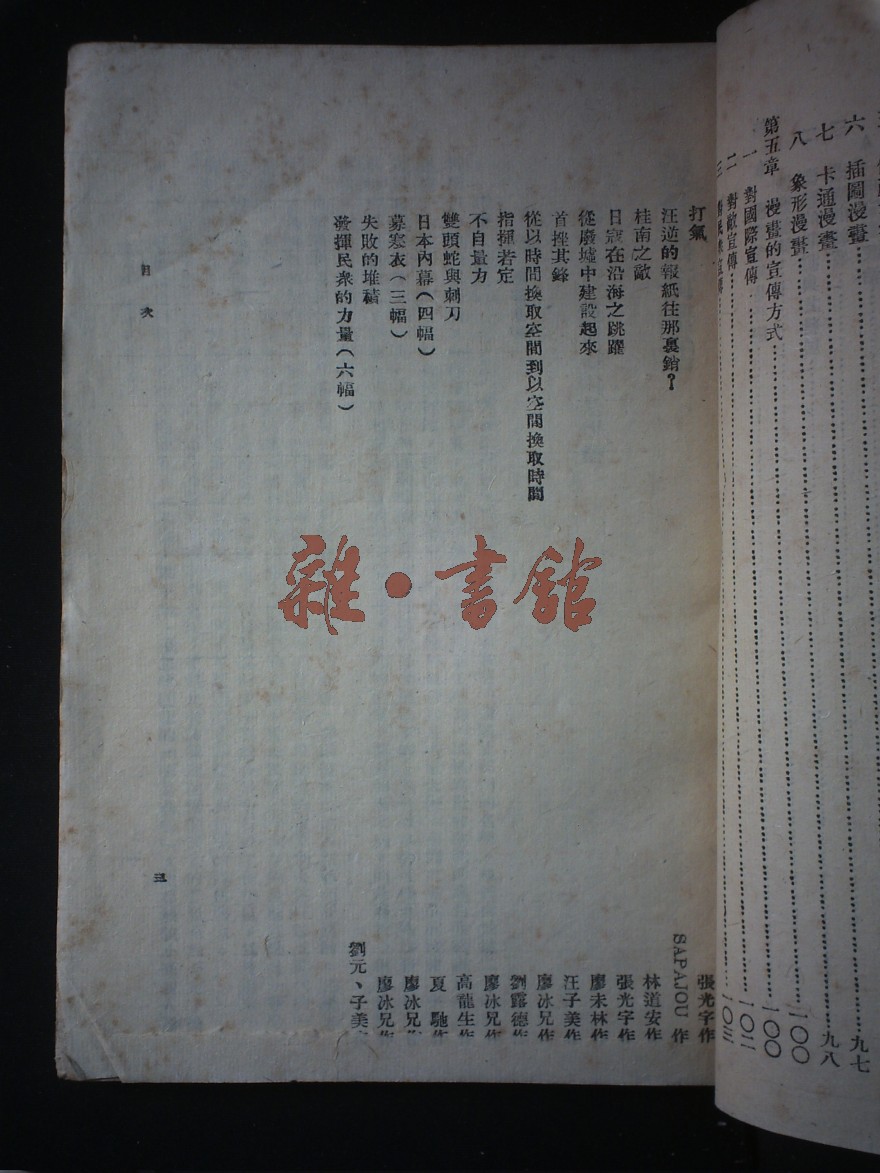 六 插圖漫畫……九七
七 卡通漫畫……九八
八 象形漫畫……一〇〇
第五章 漫畫的宣傳方式……一〇〇
一 對國際宣傳……一〇二
二 對敵宣傳……一〇三
打氣 張光宇作
汪逆的報紙往那裏銷? SAPAJOU 作
桂南之敵 林道安作
日寇在沿海之跳躍 張光宇作
從廢墟中建設起來 廖未林作
首挫其鋒 汪子美作
從以時間換取空間到以空間換取時間 廖冰兄作
指揮若定 劉露德作
不自量力 廖冰兄作
雙頭蛇與刺刀 高龍生作
日本內幕(四幅) 夏 馳作
募寒衣(三幅) 廖冰兄作
失敗的堆積 廖冰兄作
發揮民衆的力量(六幅) 劉元、子美
目次
三
雜·書館